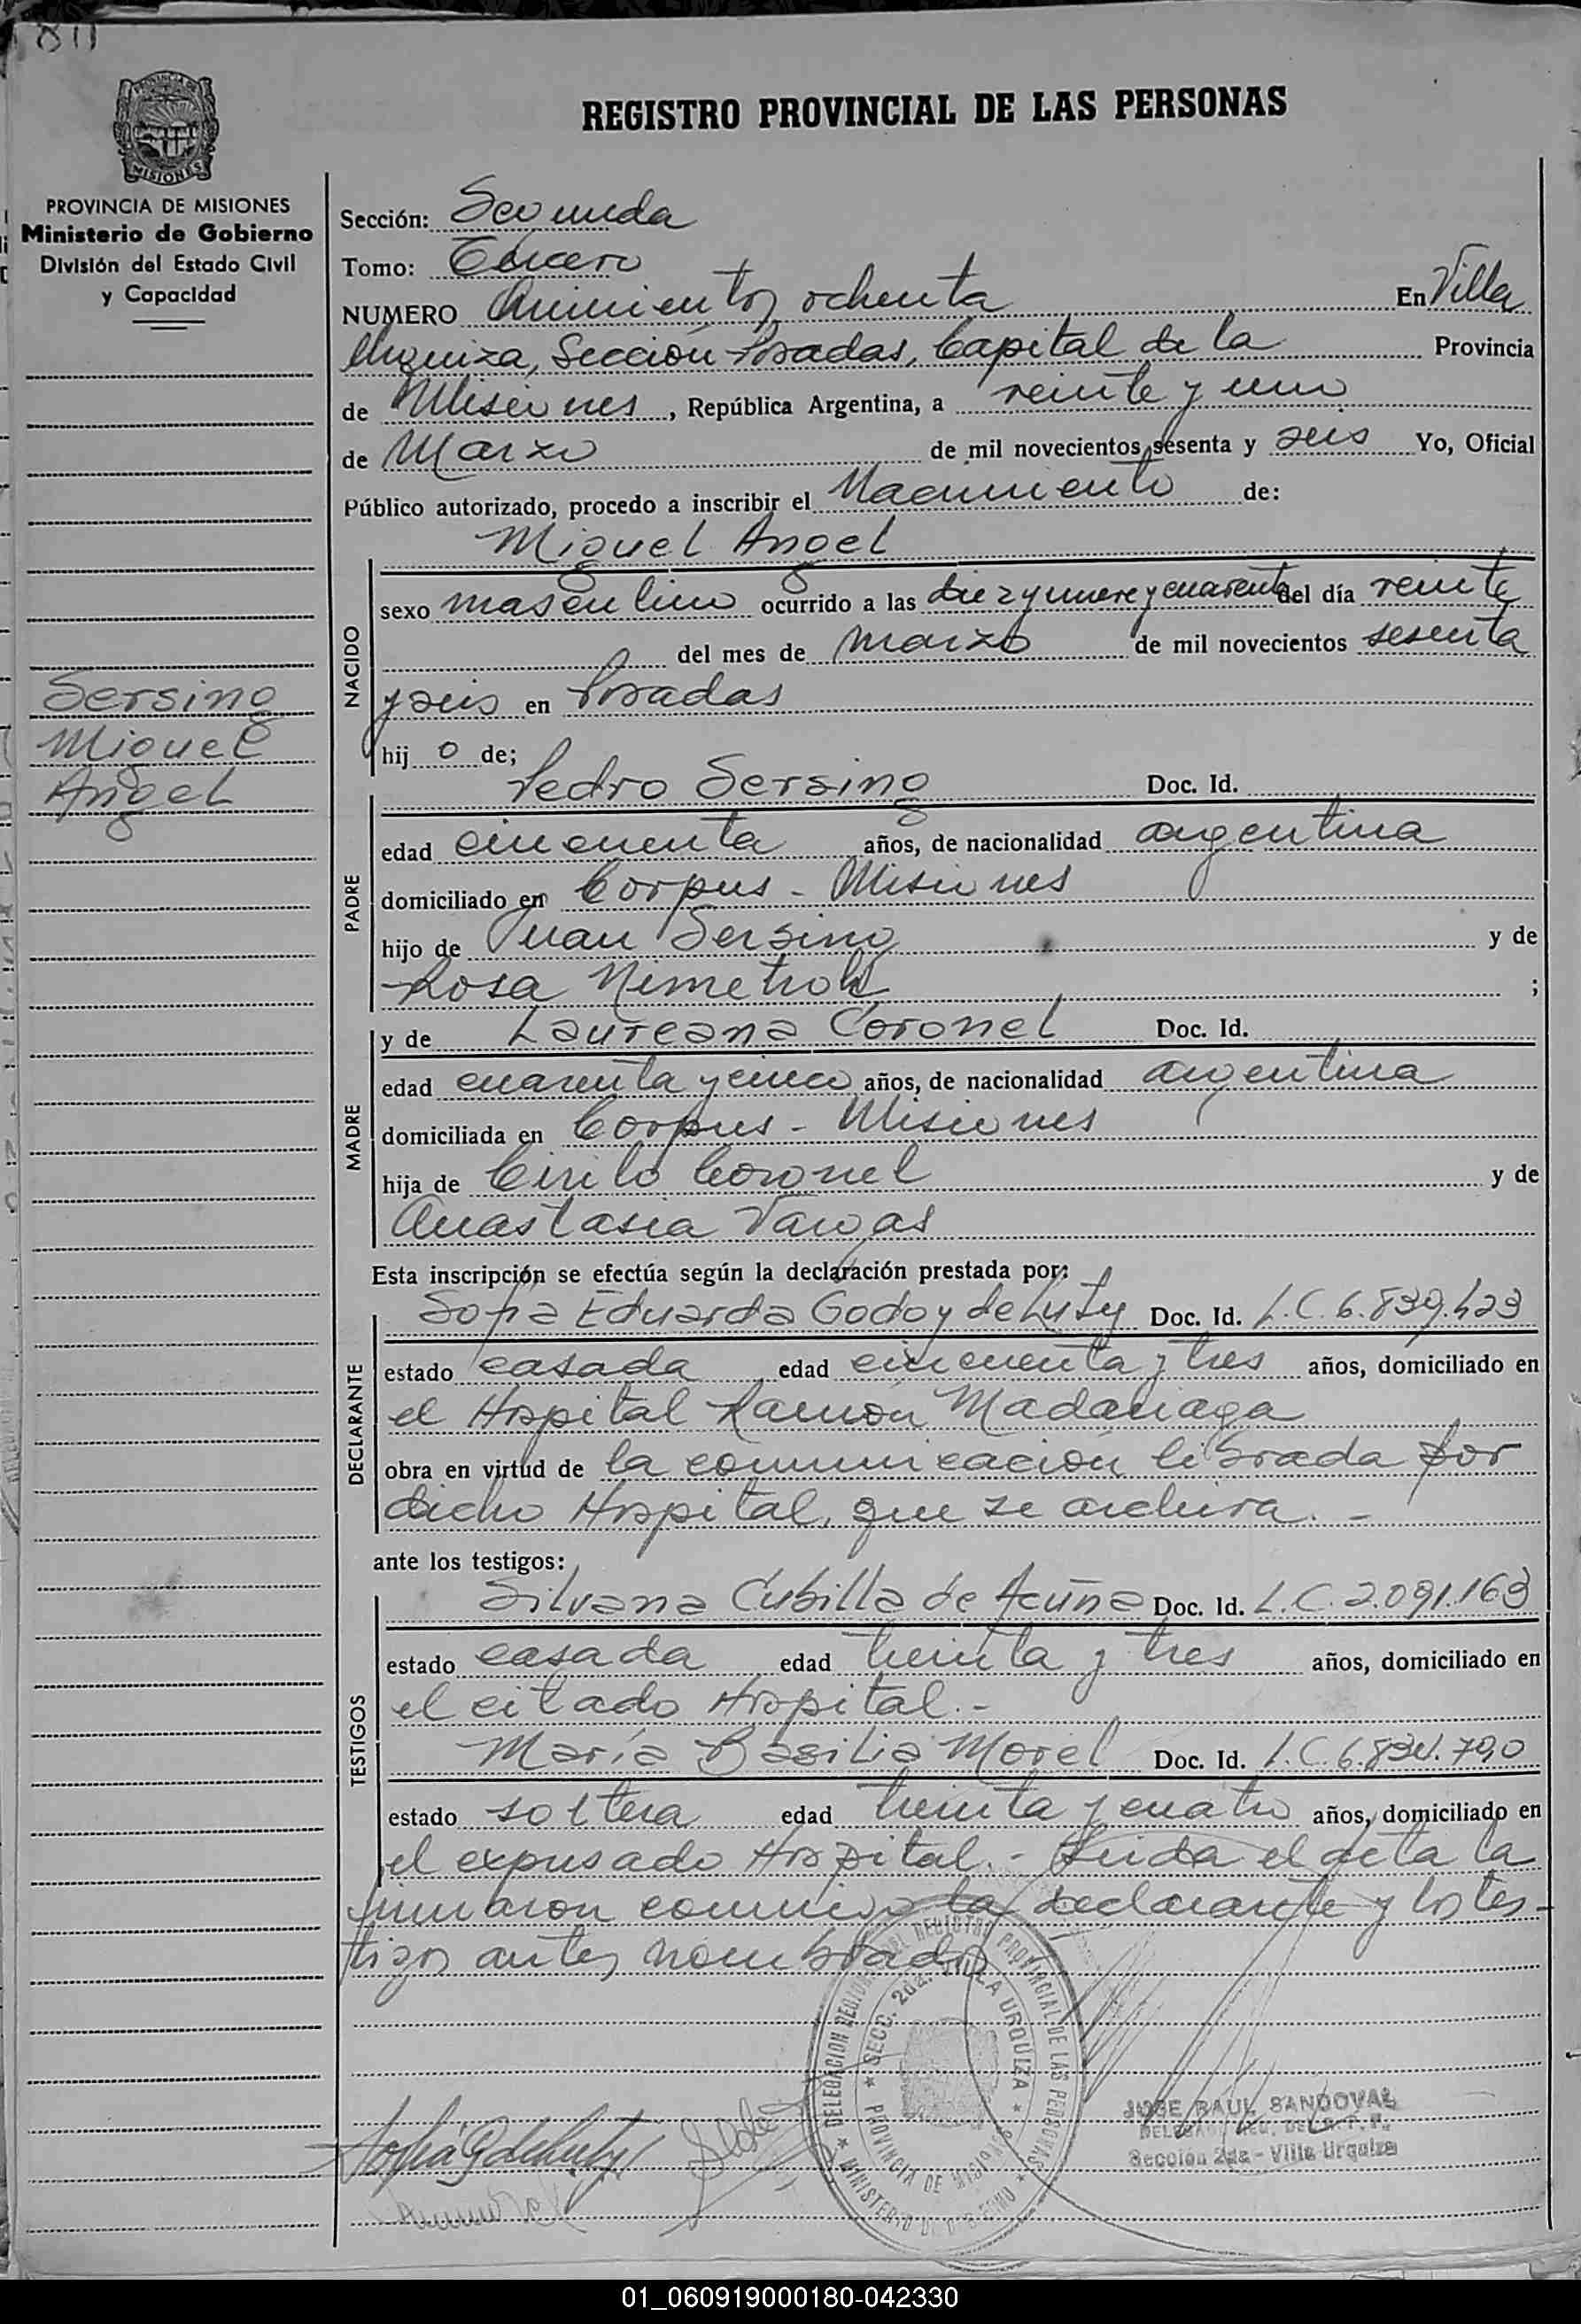 811
PROVINCIA DE
MISIONES
PROVINCIA DE MISIONES
Ministerio de Gobierno
División del Estado Civil
y Capacidad
Sersing
Miguel
Angel
REGISTRO PROVINCIAL DE LAS PERSONAS
Sección: Segunda
Tomo: Tercero
NUMERO Quinientos ochenta En Villa
Urquiza, Sección Posadas, Capital de la Provincia
de Misiones, República Argentina, a veinte y uno
de Marzo de mil novecientos sesenta y seis Yo, Oficial
Público autorizado, procedo a inscribir el Nacimiento de:
Miguel Angel
NACIDO
sexo masculino ocurrido a las diez y nueve y cuarenta del día veinte
del mes de marzo de mil novecientos sesenta
y seis en Posadas
hij o de;
Pedro Sersing Doc. Id.
PADRE
edad cincuenta años, de nacionalidad argentina
domiciliado en Corpus - Misiones
hijo de Juan Sersing y de
Rosa ;
y de Laureana Coronel Doc. Id.
MADRE
edad cuarenta y cinco años, de nacionalidad argentina
domiciliada en Corpus - Misiones
hija de Cirilo Coronel y de
Anastasia Vargas
Esta inscripción se efectúa según la declaración prestada por:
Sofia Eduarda Godoy de Luty Doc. Id. L.C. 6.839.423
DECLARANTE
estado casada edad cincuenta y tres años, domiciliado en
el Hospital Ramón Madariaga
obra en virtud de la comunicación librada por
dicho Hospital, que se archiva. -
ante los testigos:
Silvana Cubilla de Acuña Doc. Id. L.C. 2.091.163
TESTIGOS
estado casada edad treinta y tres años, domiciliado en
el citado Hospital. -
María Basilia Morel Doc. Id. L.C. 6.834.790
estado soltera edad treinta y cuatro años, domiciliado en
el expresado Hospital. - Leida el acta la
firmaron conmigo la declarante y los tes-
tigos antes nombrados
DELEGACION REGIONAL DEL REGISTRO PROVINCIAL DE LAS PERSONAS
SECC. 2da. VILLA URQUIZA
PROVINCIA DE MISIONES
MINISTERIO DE GOBIERNO
JOSE RAUL SANDOVAL
Sección 2da - Villa Urquiza
Sofia G de Luty
01_060919000180-042330